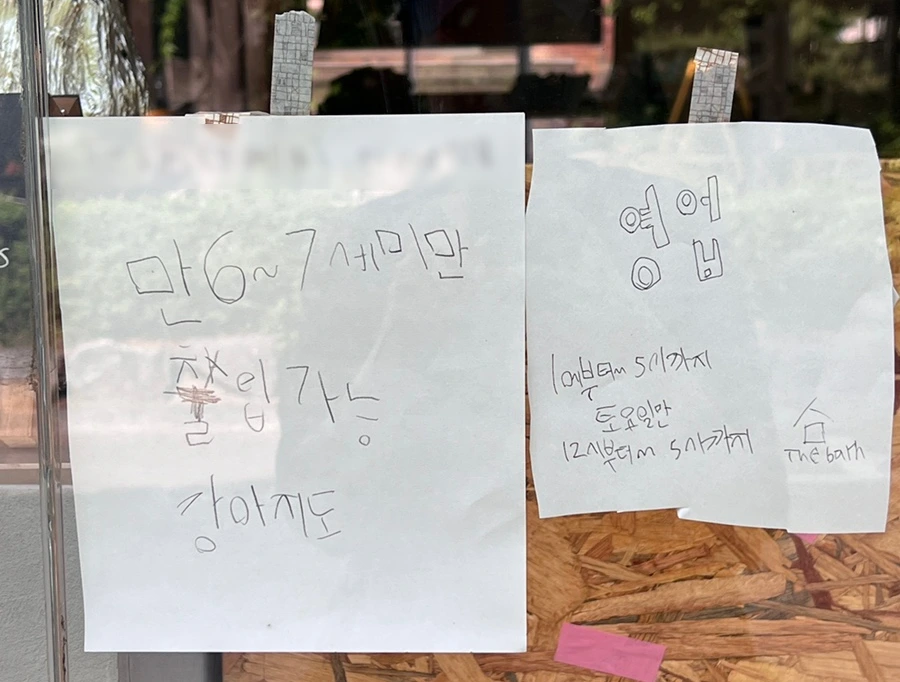 만 6~7세미만
출입가능
강아지도
영업
1시부터 5시까지
토요일만
12시부터 5시까지
The barn